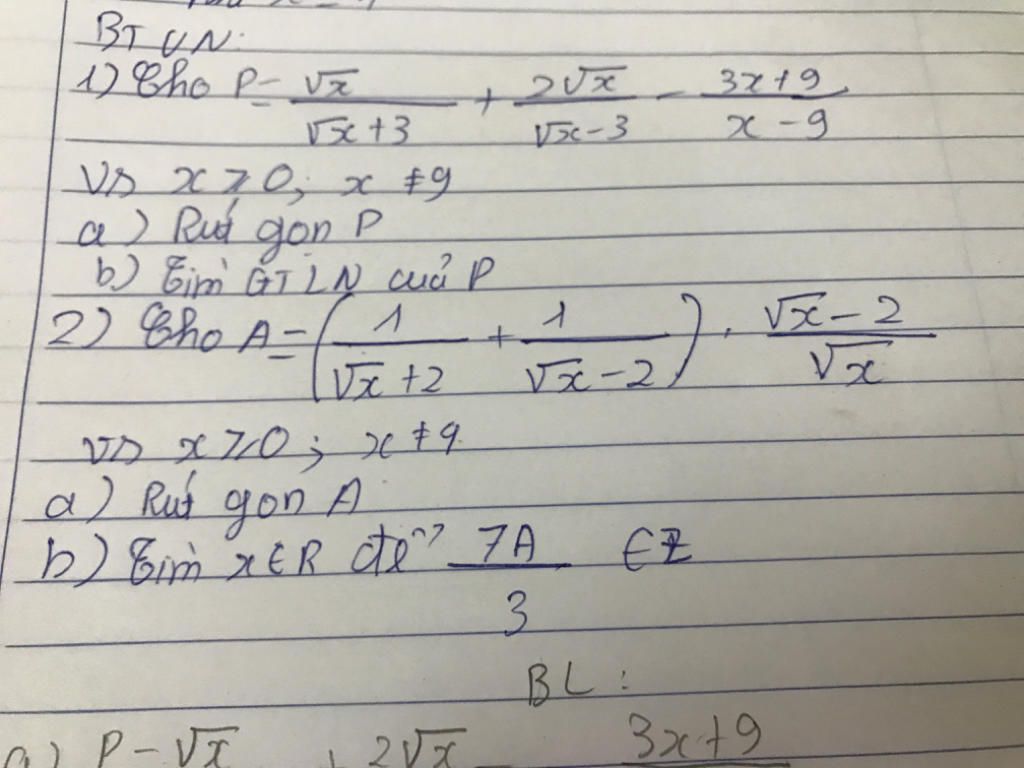 BTVN:
1) Cho P = √x / (√x + 3) + 2√x / (√x - 3) - (3x + 9) / (x - 9)
Vs x ⩾ 0; x ≠ 9
a) Rút gọn P
b) Tìm GTLN của P
2) Cho A = (1 / (√x + 2) + 1 / (√x - 2)) . (√x - 2) / √x
vs x ⩾ 0; x ≠ 9
a) Rút gọn A
b) Tìm x ∈ R để 7A / 3 ∈ Z
BL:
a) P - √x + 2√x - 3x + 9